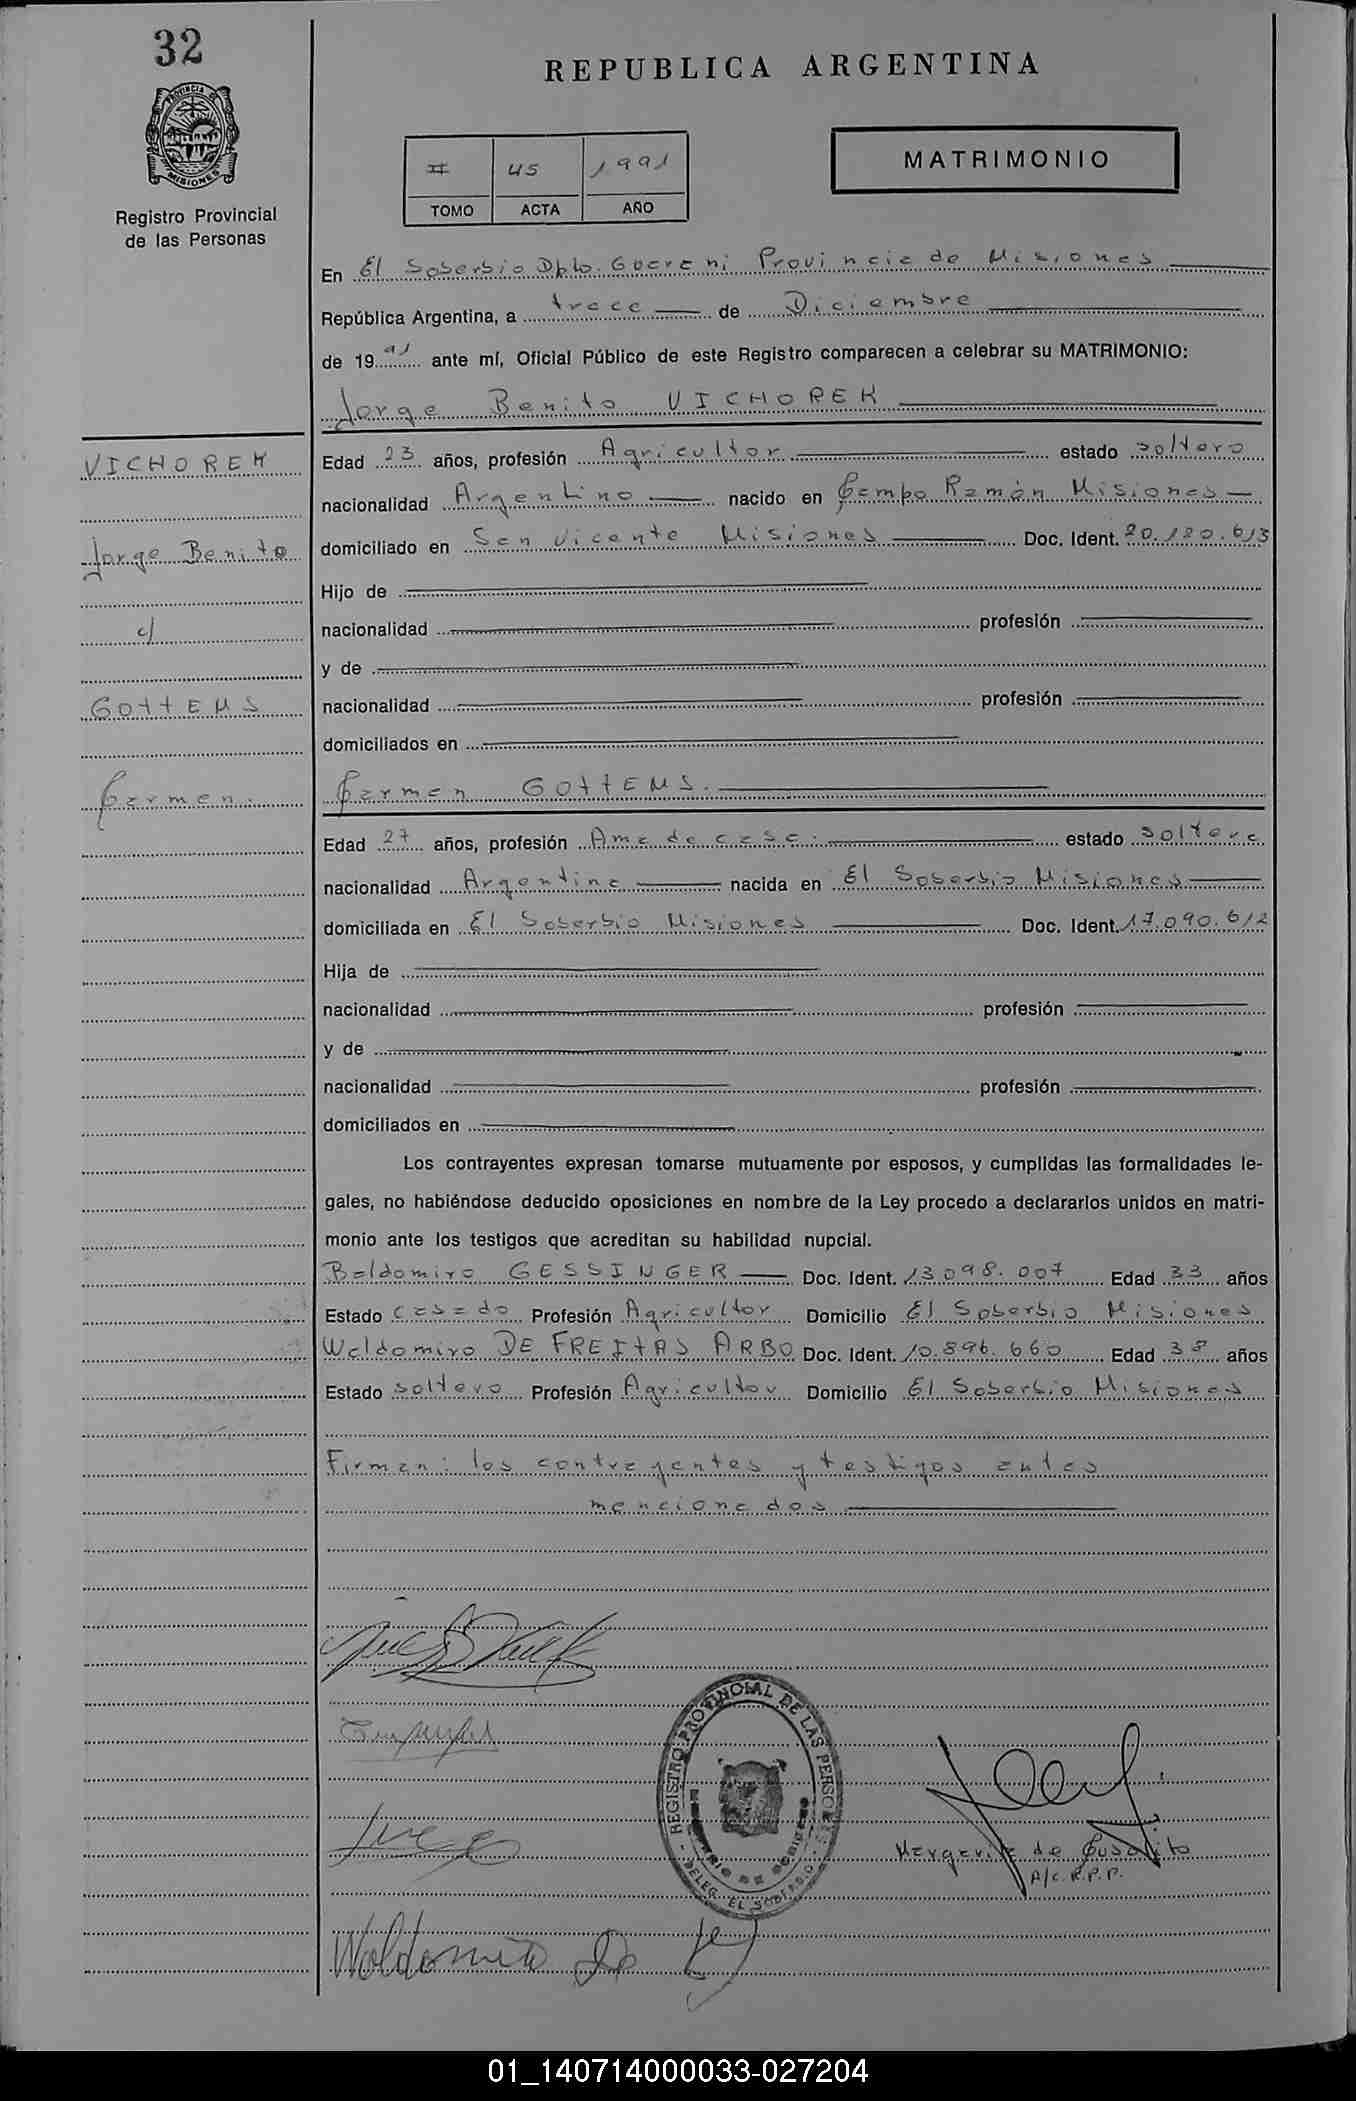 32
PROVINCIA DE MISIONES
Registro Provincial
de las Personas
REPUBLICA ARGENTINA
MATRIMONIO
II 45 1991
TOMO ACTA AÑO
En El Soberbio Dpto. Guarani Provincia de Misiones
República Argentina, a trece de Diciembre
de 1991 ante mí, Oficial Público de este Registro comparecen a celebrar su MATRIMONIO:
Jorge Benito VICHOREK
VICHOREK
Jorge Benito
c/
GOttEMS
Carmen.
Edad 23 años, profesión Agricultor estado soltero
nacionalidad Argentino nacido en Campo Ramón Misiones
domiciliado en San Vicente Misiones Doc. Ident. 20.120.613
Hijo de
nacionalidad profesión
y de
nacionalidad profesión
domiciliados en
Carmen GOttEMS.
Edad 27 años, profesión Ama de casa. estado soltera
nacionalidad Argentina nacida en El Soberbio Misiones
domiciliada en El Soberbio Misiones Doc. Ident. 17.090.612
Hija de
nacionalidad profesión
y de
nacionalidad profesión
domiciliados en
Los contrayentes expresan tomarse mutuamente por esposos, y cumplidas las formalidades le-
gales, no habiéndose deducido oposiciones en nombre de la Ley procedo a declararlos unidos en matri-
monio ante los testigos que acreditan su habilidad nupcial.
Baldomiro GESSINGER Doc. Ident. 13.098.007 Edad 33 años
Estado casado Profesión Agricultor Domicilio El Soberbio Misiones
Waldomiro DE FREItAS ARBO Doc. Ident. 10.896.660 Edad 38 años
Estado soltero Profesión Agricultor Domicilio El Soberbio Misiones
Firman: los contrayentes y testigos antes
mencionados
REGISTRO PROVINCIAL DE LAS PERSONAS
DELEG. EL SOBERBIO
Margarita de
A/c. R.P.P.
Waldomiro De
01_140714000033-027204